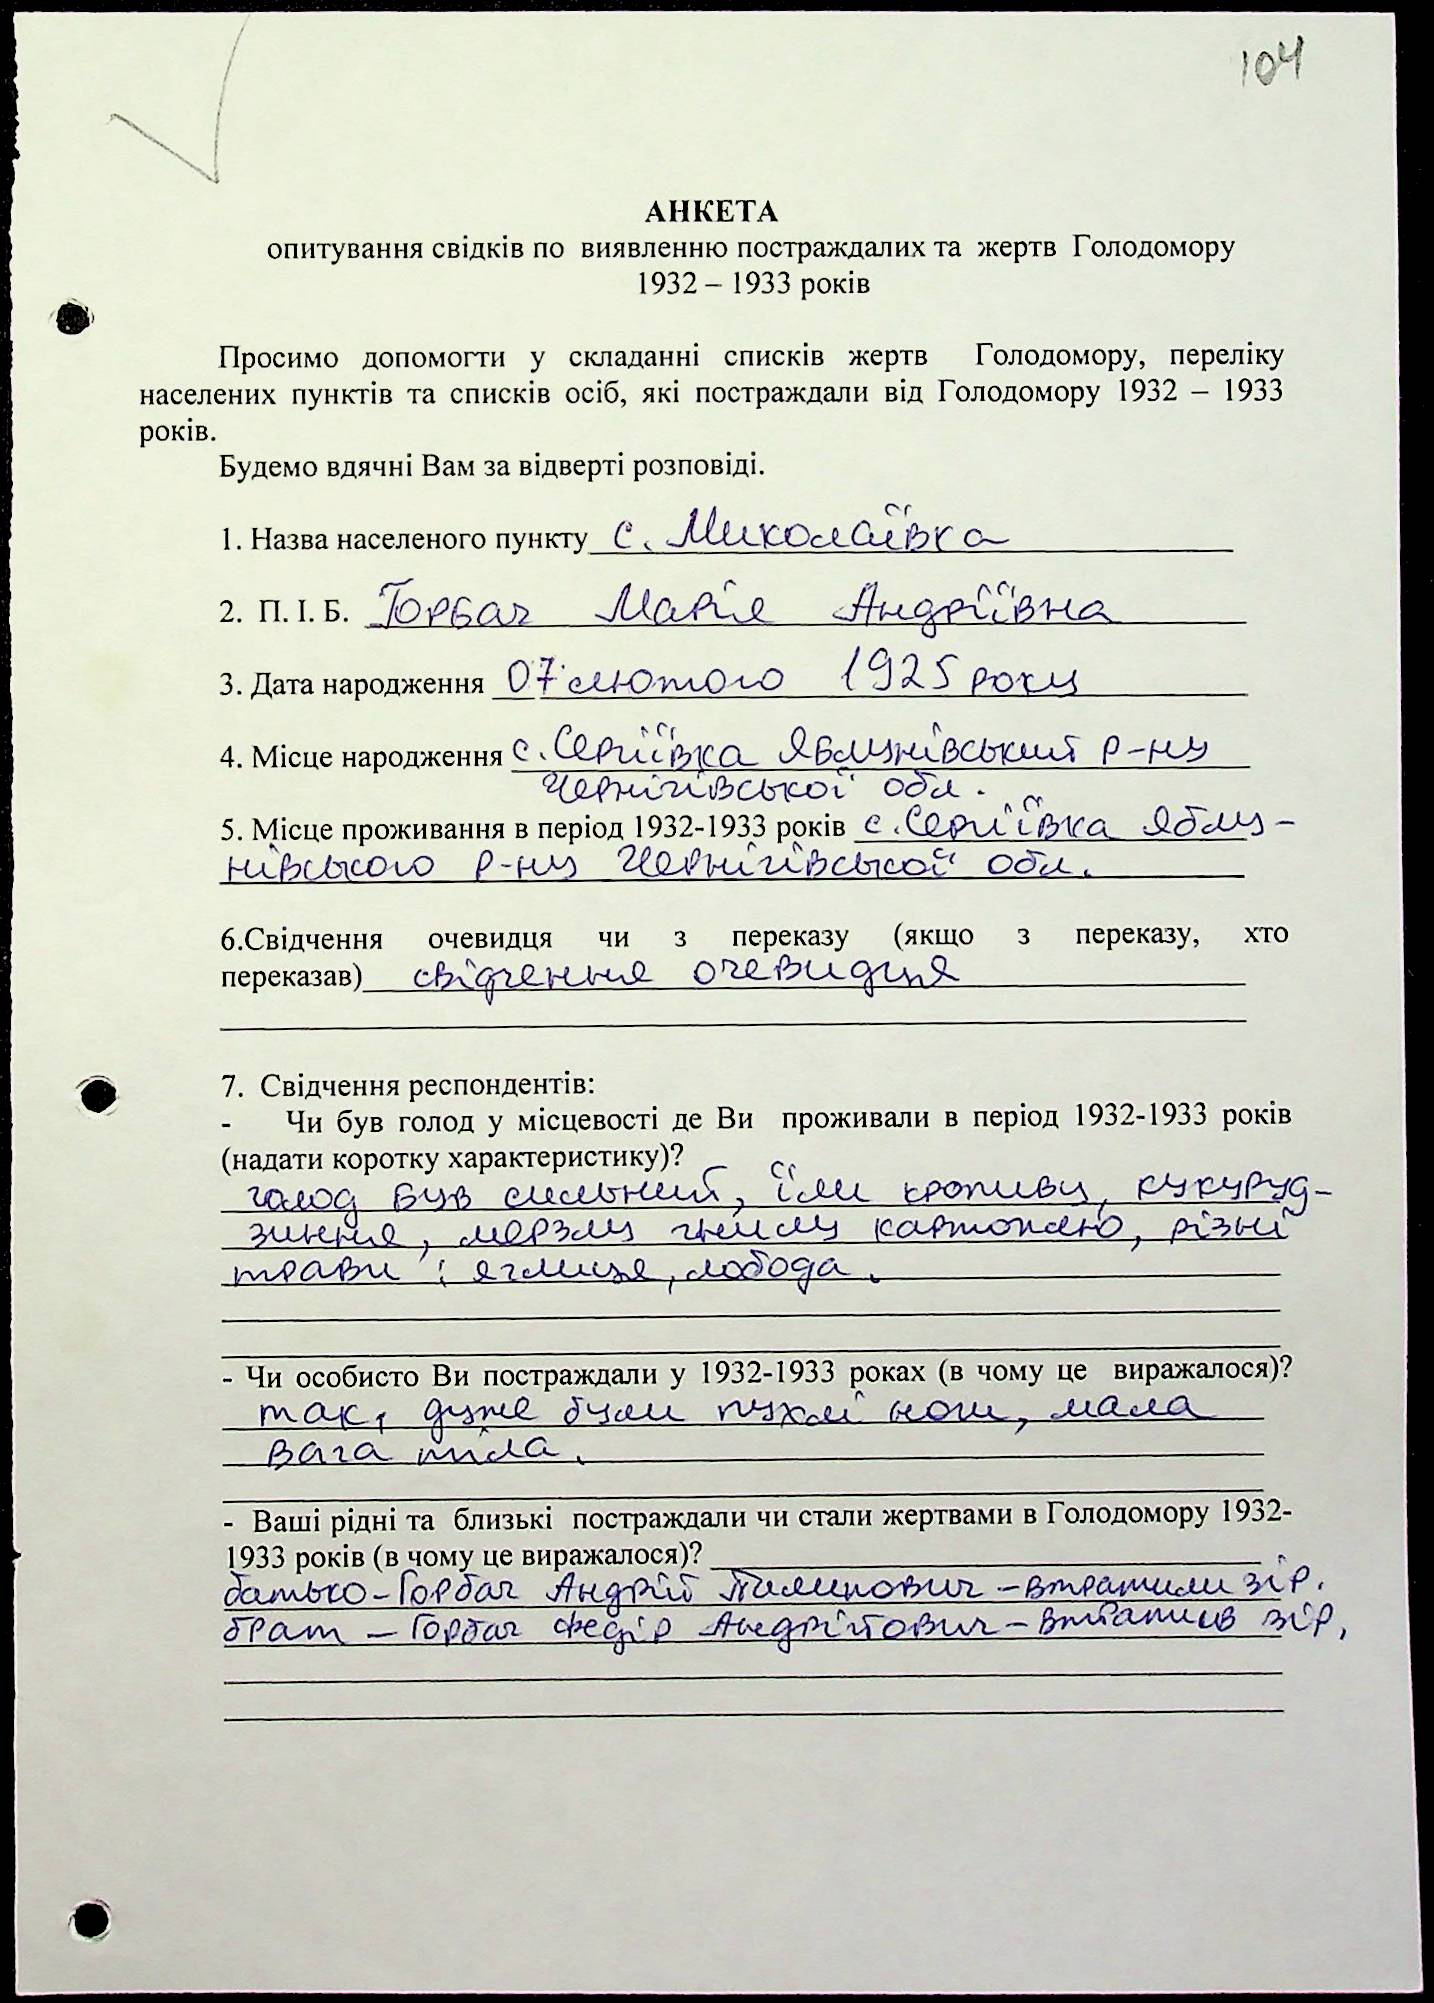 104
АНКЕТА
опитування свідків по виявленню постраждалих та жертв Голодомору
1932 – 1933 років
Просимо допомогти у складанні списків жертв Голодомору, переліку
населених пунктів та списків осіб, які постраждали від Голодомору 1932 – 1933
років.
Будемо вдячні Вам за відверті розповіді.
1. Назва населеного пункту с. Миколаївка
2. П. І. Б. Горбач Марія Андріївна
3. Дата народження 07 лютого 1925 року
4. Місце народження с. Сергіївка Яблунівський р-ну
Чернігівської обл.
5. Місце проживання в період 1932-1933 років с. Сергіївка Яблу-
нівського р-ну Чернігівської обл.
6.Свідчення очевидця чи з переказу (якщо з переказу, хто
переказав) свідчення очевидця
7. Свідчення респондентів:
- Чи був голод у місцевості де Ви проживали в період 1932-1933 років
(надати коротку характеристику)?
голод був сильний, їли кропиву, кукуруд-
зиння, мерзлу гнилу картоплю, різні
трави : яглиця, лобода.
- Чи особисто Ви постраждали у 1932-1933 роках (в чому це виражалося)?
так, дуже були пухлі ноги, мала
вага тіла.
- Ваші рідні та близькі постраждали чи стали жертвами в Голодомору 1932-
1933 років (в чому це виражалося)?
батько - Горбач Андрій Пилипович - втратили зір.
брат - Горбач Федір Андрійович - втратив зір,